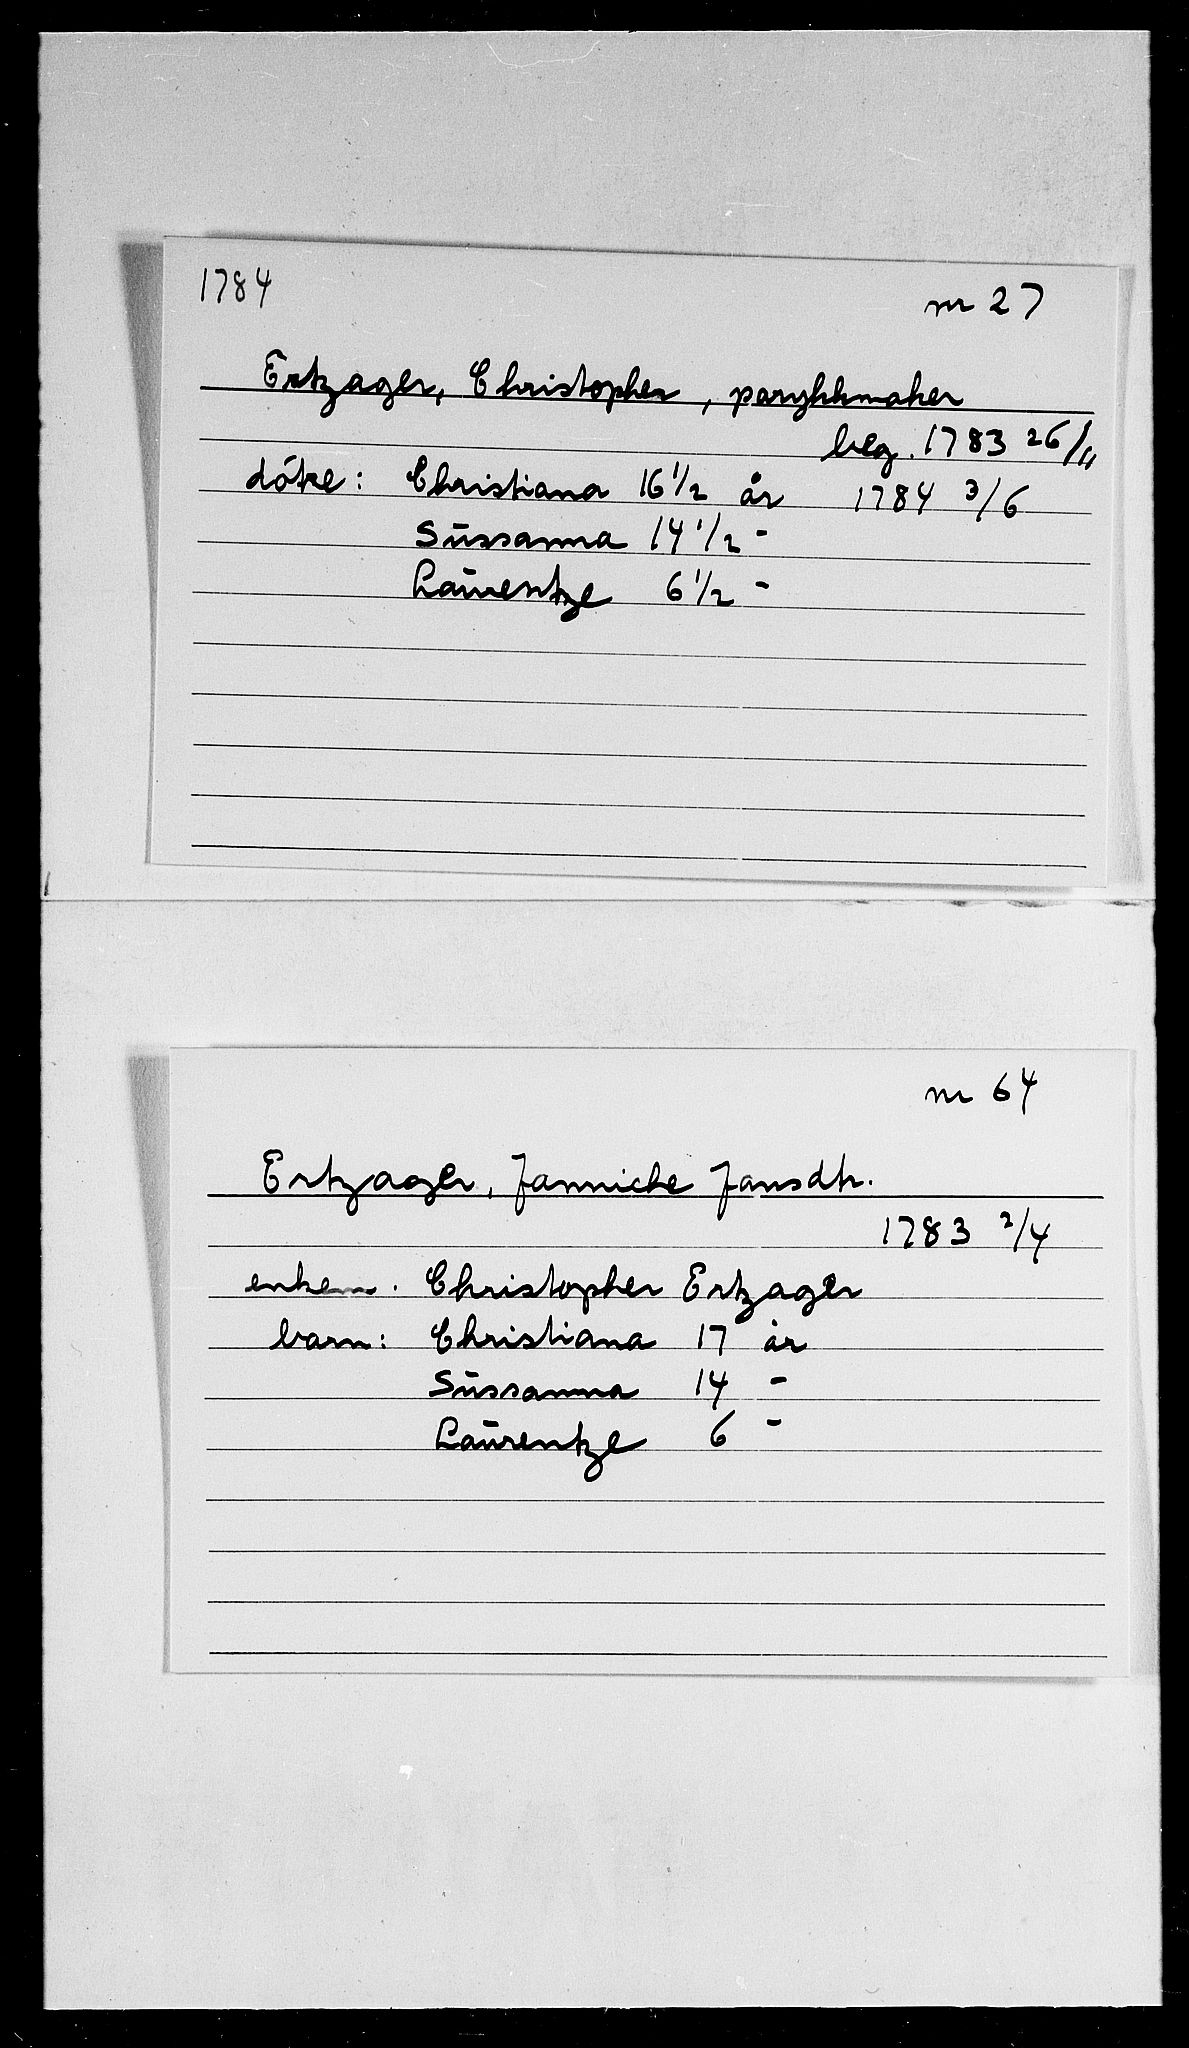 1784
nr 27
Ertzager, Christopher, parykkmaker
beg. 1783 26/11
døtre: Christiana 16 1/2 år 1784 3/6
Sŭssanna 14 1/2 -
Laŭrentze 6 1/2 -
nr 64
Ertzager, Janniche Jansdtr.
1783 2/4
enkem. Christopher Ertzager
barn: Christiana 17 år
Sŭssanna 14 -
Laŭrentze 6 -